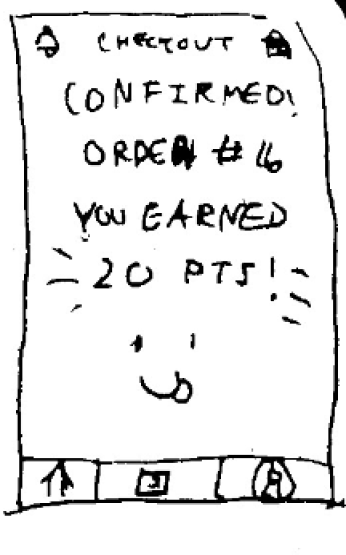 CHECKOUT
CONFIRMED!
ORDER #16
YOU EARNED
20 PTS!